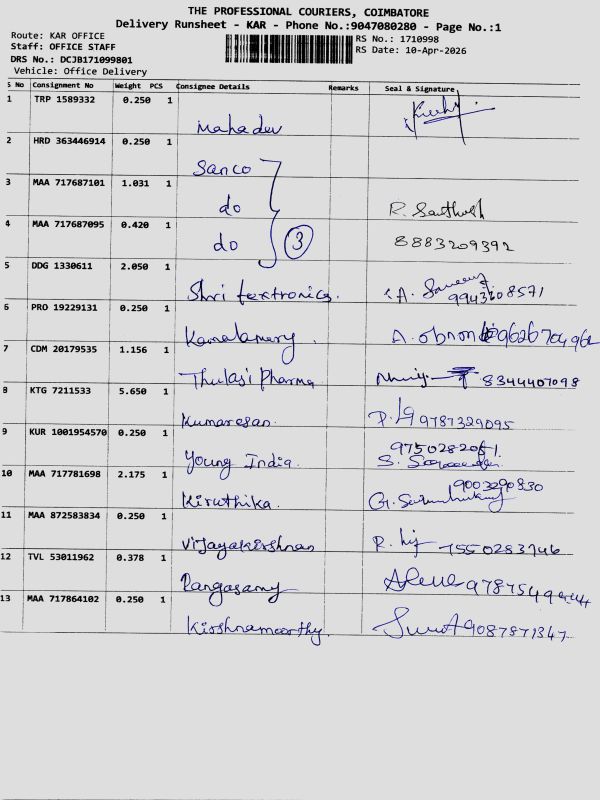 THE PROFESSIONAL COURIERS, COIMBATORE
Delivery Runsheet - KAR - Phone No.:9047080280 - Page No.:1
Route: KAR OFFICE
RS No.: 1710998
Staff: OFFICE STAFF
RS Date: 10-Apr-2026
DRS No.: DCJB171099801
Vehicle: Office Delivery
S No Consignment No Weight PCS Consignee Details Remarks Seal & Signature
1 TRP 1589332 0.250 1
Mahadev
2 HRD 363446914 0.250 1
Sanco
3 MAA 717687101 1.031 1
do R. Santhosh
4 MAA 717687095 0.420 1
do 3 8883209392
5 DDG 1330611 2.050 1
Shri textronics. A.
6 PRO 19229131 0.250 1
A.
7 CDM 20179535 1.156 1
Thulasi Pharma 8344407098
8 KTG 7211533 5.650 1
Kumaresan. 9787329095
9 KUR 1001954570 0.250 1
Young India. S.
10 MAA 717781698 2.175 1
Kiruthika. G.
11 MAA 872583834 0.250 1
Vijayakrishnan R. 7550283746
12 TVL 53011962 0.378 1
Rangasamy
13 MAA 717864102 0.250 1
Kirshnamoorthy. 9087871347